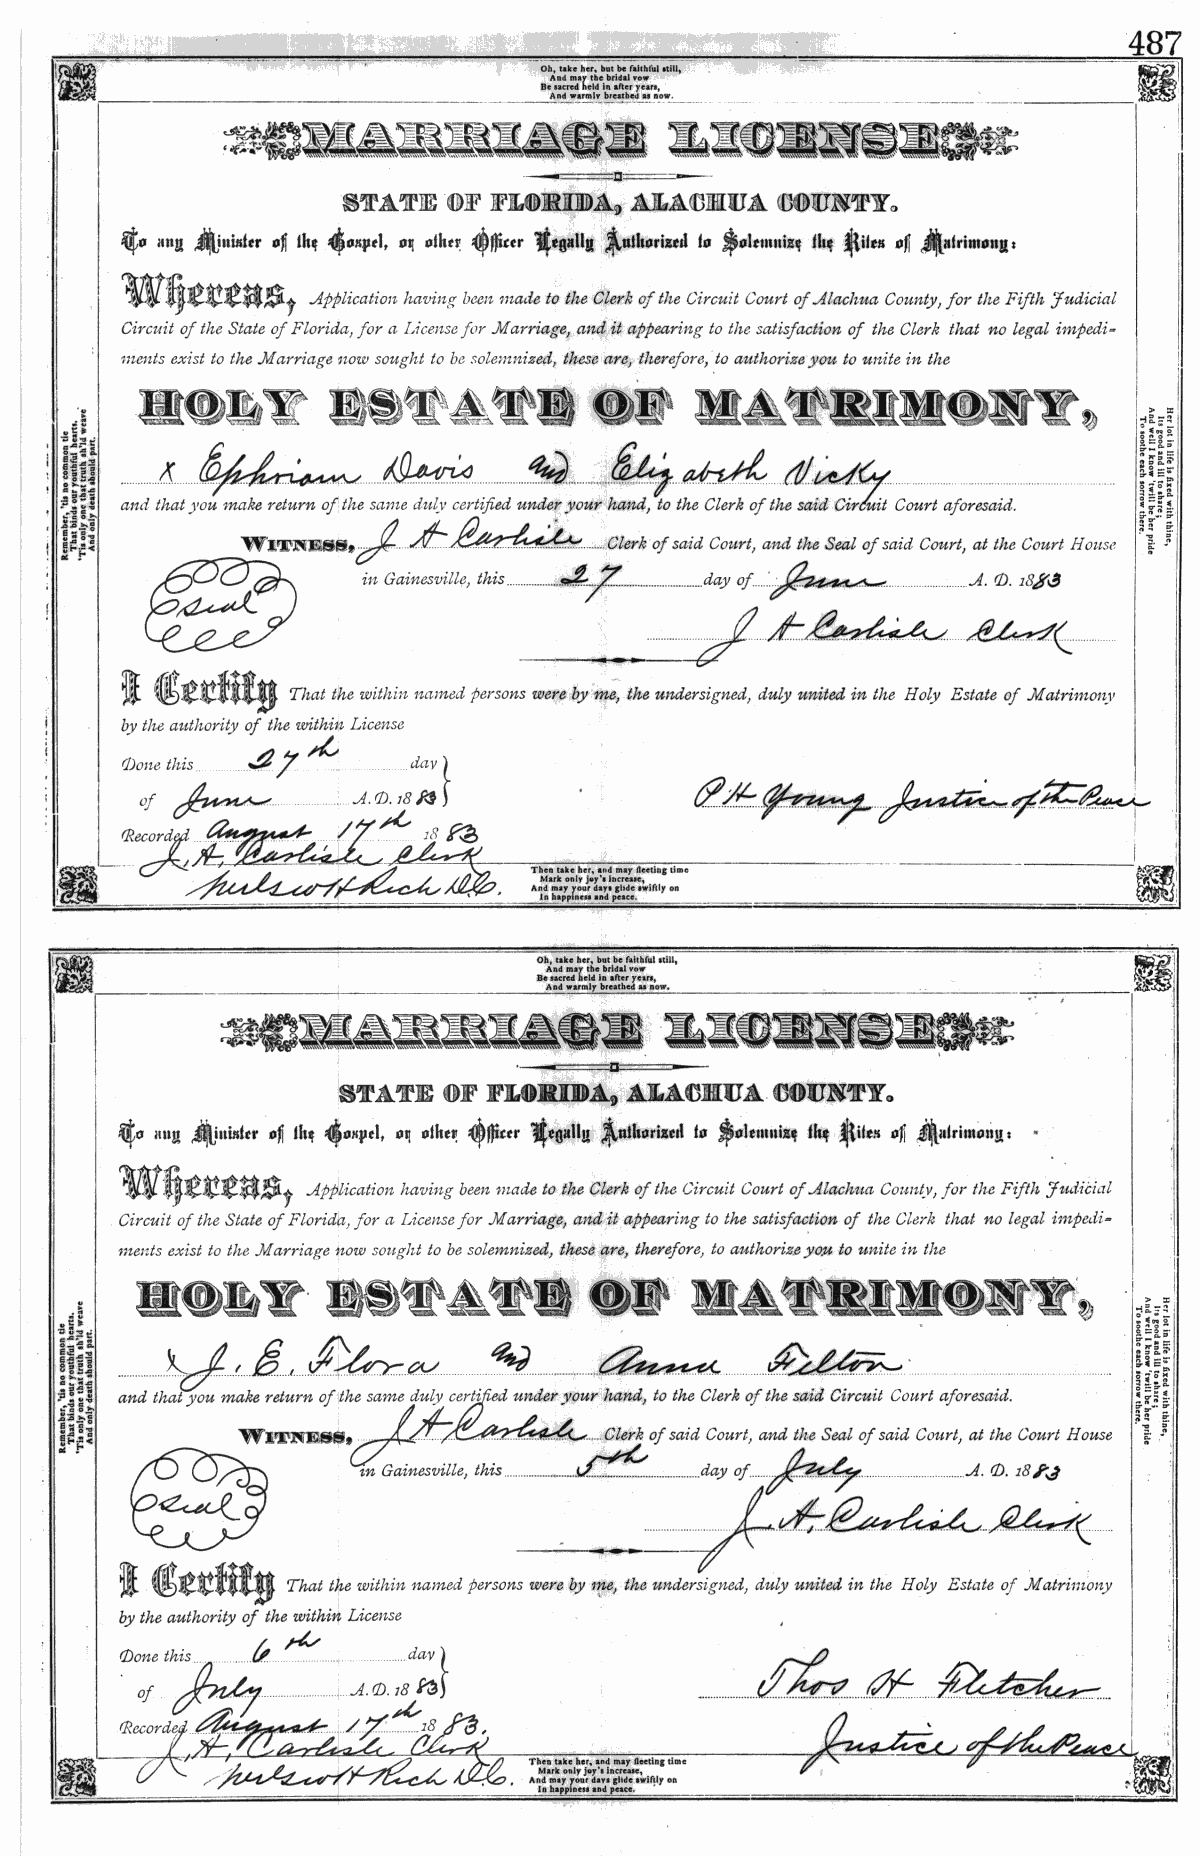 487
Oh, take her, but be faithful still,
And may the bridal vow
Be sacred held in after years,
And warmly breathed as now.
MARRIAGE LICENSE
STATE OF FLORIDA, ALACHUA COUNTY.
To any Minister of the Gospel, or other Officer Legally Authorized to Solemnize the Rites of Matrimony:
Whereas, Application having been made to the Clerk of the Circuit Court of Alachua County, for the Fifth Judicial
Circuit of the State of Florida, for a License for Marriage, and it appearing to the satisfaction of the Clerk that no legal impedi-
ments exist to the Marriage now sought to be solemnized, these are, therefore, to authorize you to unite in the
HOLY ESTATE OF MATRIMONY,
x Ephriam Davis and Elizabeth Vicky
and that you make return of the same duly certified under your hand, to the Clerk of the said Circuit Court aforesaid.
WITNESS, J A Carlisle Clerk of said Court, and the Seal of said Court, at the Court House
in Gainesville, this 27 day of June A. D. 1883
Seal
J A Carlisle Clerk
I Certify That the within named persons were by me, the undersigned, duly united in the Holy Estate of Matrimony
by the authority of the within License
Done this 27th day
of June A. D. 1883
P H Young Justice of the Peace
Recorded August 17th 1883
J. A. Carlisle Clerk
H Rich D.C.
Remember, 'tis no common tie
That binds our youthful hearts,
'Tis only one that truth sh'ld weave
And only death should part.
Her lot in life is fixed with thine,
Its good and ill to share;
And well I know 'twill be her pride
To soothe each sorrow there.
Then take her, and may fleeting time
Mark only joy's increase,
And may your days glide swiftly on
In happiness and peace.
Oh, take her, but be faithful still,
And may the bridal vow
Be sacred held in after years,
And warmly breathed as now.
MARRIAGE LICENSE
STATE OF FLORIDA, ALACHUA COUNTY.
To any Minister of the Gospel, or other Officer Legally Authorized to Solemnize the Rites of Matrimony:
Whereas, Application having been made to the Clerk of the Circuit Court of Alachua County, for the Fifth Judicial
Circuit of the State of Florida, for a License for Marriage, and it appearing to the satisfaction of the Clerk that no legal impedi-
ments exist to the Marriage now sought to be solemnized, these are, therefore, to authorize you to unite in the
HOLY ESTATE OF MATRIMONY,
x J. E. Flora and Anna Felton
and that you make return of the same duly certified under your hand, to the Clerk of the said Circuit Court aforesaid.
WITNESS, J A Carlisle Clerk of said Court, and the Seal of said Court, at the Court House
in Gainesville, this 5th day of July A. D. 1883
Seal
J. A. Carlisle Clerk
I Certify That the within named persons were by me, the undersigned, duly united in the Holy Estate of Matrimony
by the authority of the within License
Done this 6th day
of July A. D. 1883
Thos H Fletcher
Justice of the Peace
Recorded August 17th 1883.
J. A. Carlisle Clerk
H Rich D.C.
Remember, 'tis no common tie
That binds our youthful hearts,
'Tis only one that truth sh'ld weave
And only death should part.
Her lot in life is fixed with thine,
Its good and ill to share;
And well I know 'twill be her pride
To soothe each sorrow there.
Then take her, and may fleeting time
Mark only joy's increase,
And may your days glide swiftly on
In happiness and peace.